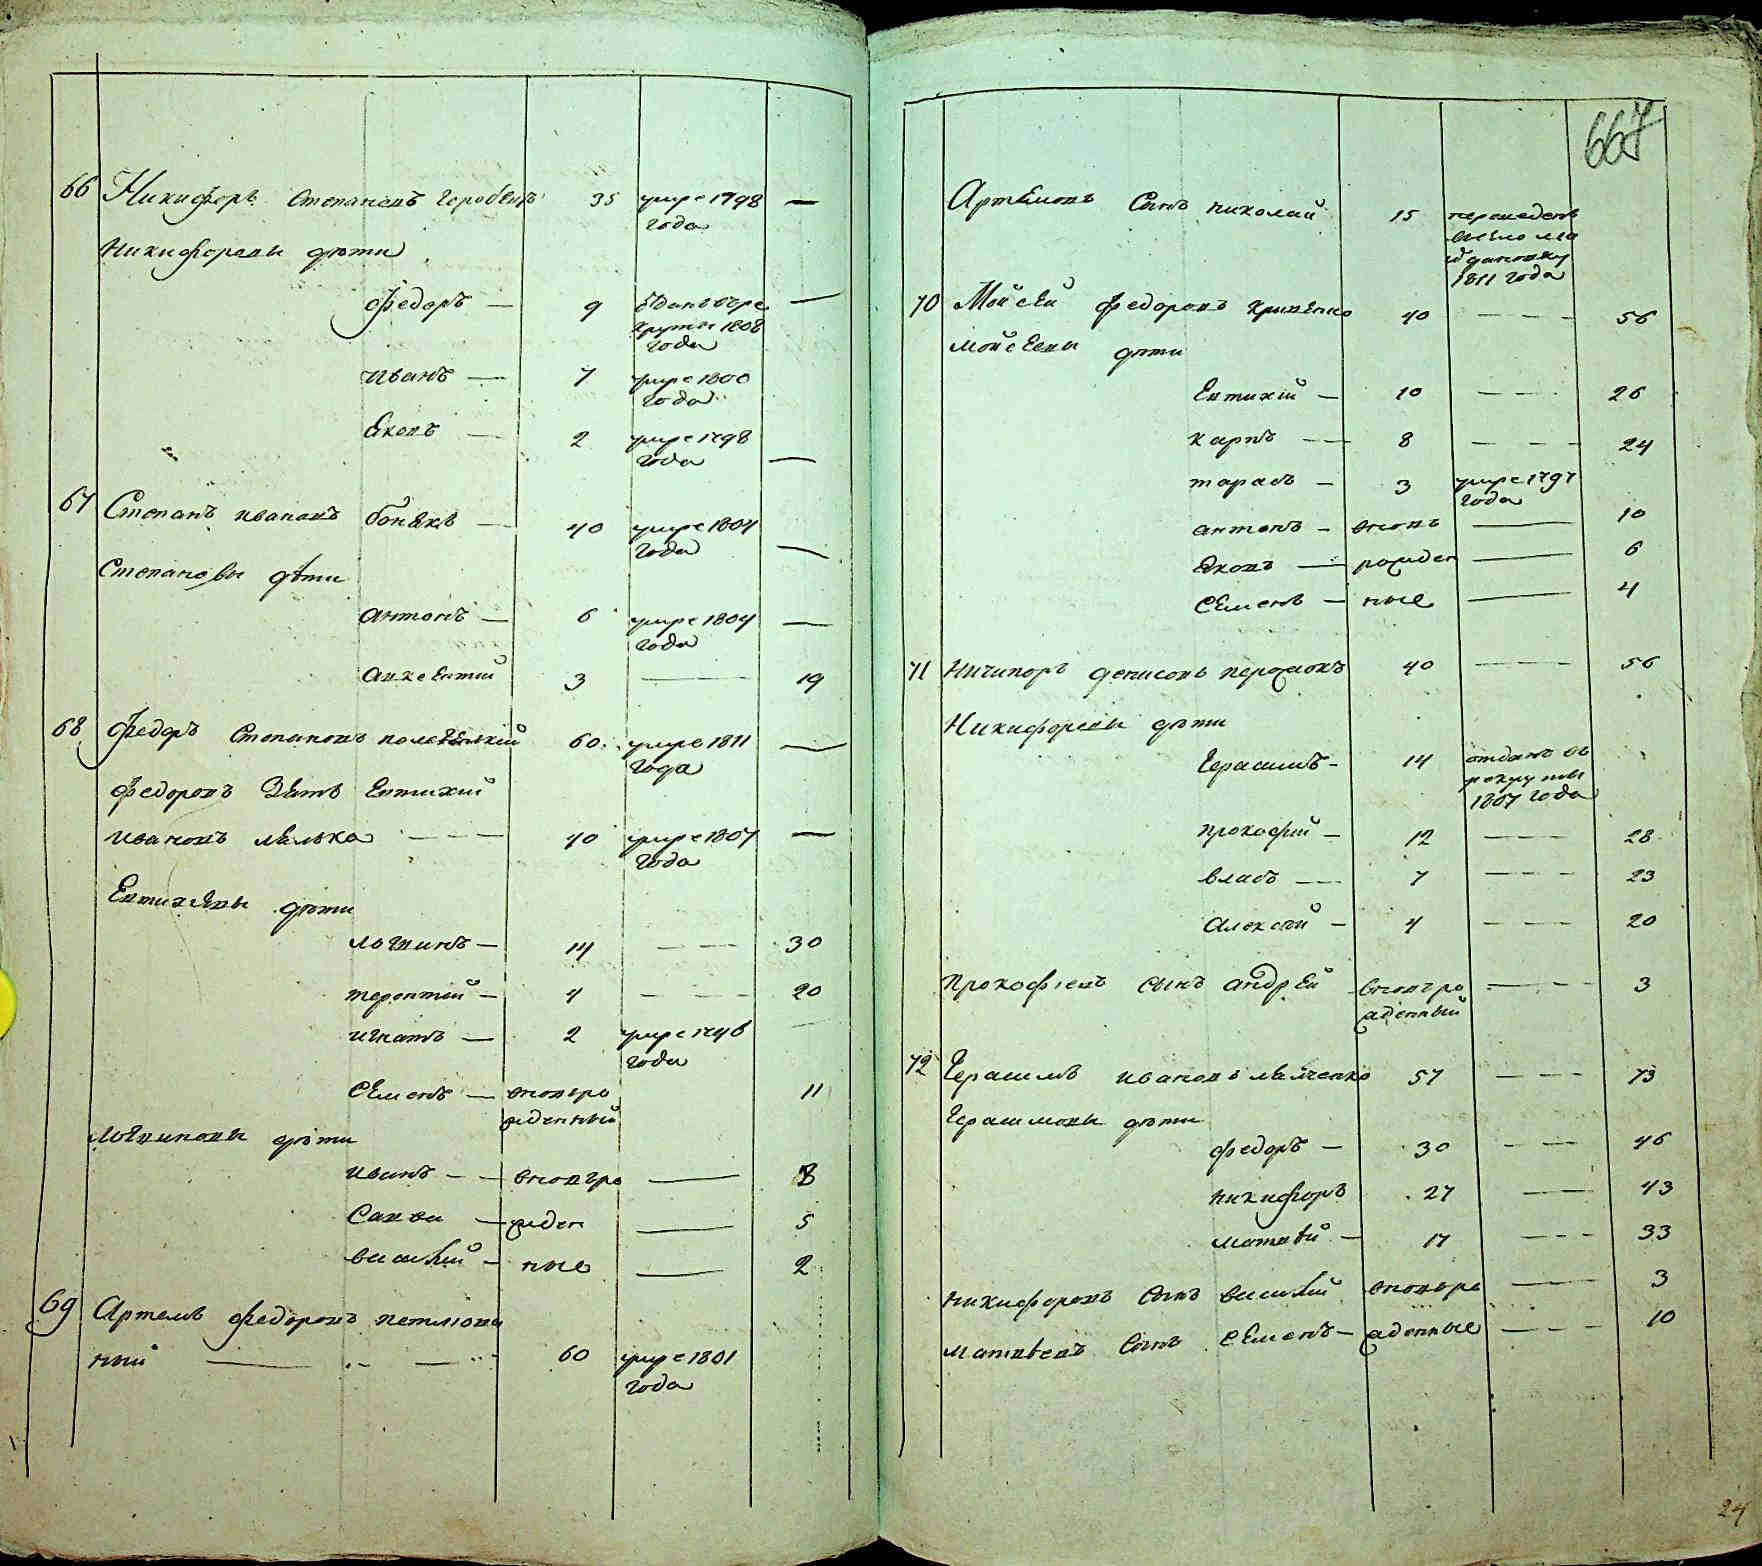 66 Никифоръ Степановъ Горобецъ 35 умре 1798 —
года
Никифоровы дѣти
Федоръ — 9 въ —
рекруты 1808
года
Иванъ — 7 умре 1800
года
Яковъ — 2 умре 1798
года —
67 Степанъ Ивановъ — 40 умре 1804
года —
Степановы дѣти
Антонъ — 6 умре 1804 —
года
Авксентий 3 — 19
68 Федоръ Степановъ 60 умре 1811 —
года
Федоровъ зять Евтихий
Ивановъ 40 умре 1807 —
года
Евтихиевы дѣти
Логвинъ — 14 — — 30
Терентий — 4 — — 20
Игнатъ — 2 умре 1796
года
Семенъ — вновьро 11
жденный
Логвиновы дѣти
Иванъ — — вновьро — 8
Савва — жден — 5
Василий — ные — 2
69 Артемъ Федоровъ
ный — 60 умре 1801
года
667
Артемовъ сынъ Николай 15 перешеденъ
1811 года
70 Мойсей Федоровъ 40 — — — 56
Мойсеевы дѣти
Евтихий — 10 — — — 26
Карпъ — 8 — — — 24
Тарасъ — 3 умре 1797
года
Антонъ — вновь — 10
Яковъ — рожден — 6
Семенъ — ные — 4
71 Ничипоръ Денисовъ 40 — — — 56
Никифоровы дѣти
Герасимъ — 14 отданъ въ
рекруты
1807 года
Прокофий — 12 — — — 28
Власъ — 7 — — — 23
Алексѣй — 4 — — — 20
Прокофіевъ сынъ Андрей вновьро — — — 3
жденный
72 Герасимъ Ивановъ 57 — — — 73
Герасимовы дѣти
Федоръ — 30 — — — 46
Никифоръ 27 — — 43
Матвѣй — 17 — — — 33
Никифоровъ сынъ Василий вновьро — 3
Матвѣевъ сынъ Семенъ — жденные — — — 10
24